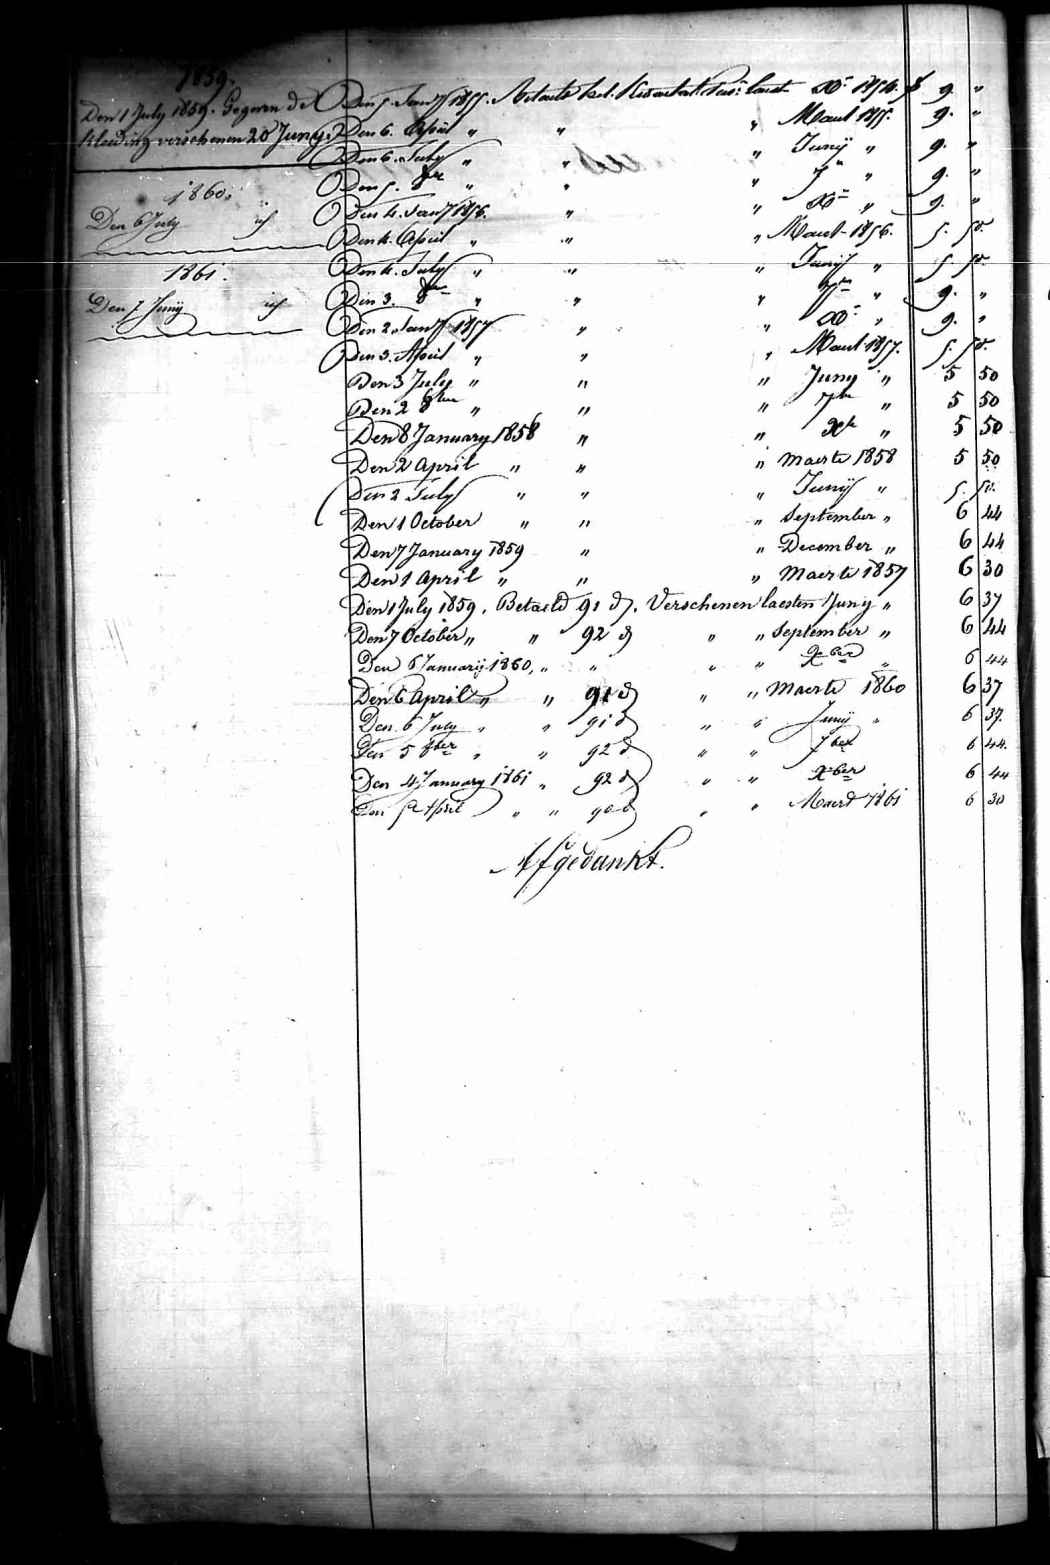 1859.
Den 1 July 1859. Gegeven de
kleeding verschenen 20 Juny.
1860.
Den 6 July id
1861.
Den 7 Junij id
Den 5. Janry 1855. Betaald het Kwartaal laest Xr 1854. f 9. "
Den 6. April " " " Maart 1855. 9. "
Den 6. July " " " Junij " 9. "
Den 5. 8br " " " 7r " 9. "
Den 4. Janry 1856. " " Xr " 9. "
Den 4. April " " " Maart 1856. 5. 50.
Den 4. July " " " Junij " 5. 50.
Den 3. 8br " " " 7br " 9. "
Den 2. Janry 1857 " " Xr " 9. "
Den 3. April " " " Maart 1857. 5. 50.
Den 3 July " " " Juny " 5 50
Den 2 8ber " " " 7br " 5 50
Den 8 January 1858 " " Xbr " 5 50
Den 2 April " " " Maerte 1858 5 50
Den 2 July " " " Junij " 5. 50.
Den 1 October " " " September " 6 44
Den 7 January 1859 " " December " 6 44
Den 1 April " " " Maerte 1857 6 30
Den 1 July 1859. Betaeld 91 d. Verschenen laesten Juny " 6 37
Den 7 October " " 92 d " " September " 6 44
Den 6 Januarij 1860, " " " " Xber " 6 44
Den 6 April " " 91 d " " Maerte 1860 6 37
Den 6 July " " 91 d " " Junij " 6 37.
Den 5 8ber " " 92 d " " 7ber 6 44.
Den 4 January 1861 " 92 d " " Xber 6 44
Den 5 April " " 90 d " " Maerd 1861 6 30
Afgedankt.